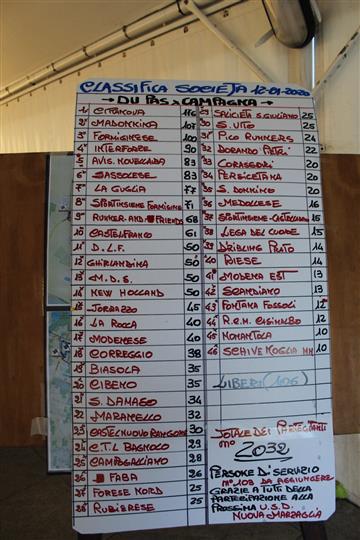 CLASSIFICA SOCIETA' 12-01-2020
→ DU PAS X CAMPAGNA ←
1° CITTANOVA 116
2° MADONNINA 107
3° FORMIGINESE 100
4° INTERFORZE 90
5° AVIS. NOVELLARA 83
6° SASSOLESE 83
7° LA GUGLIA 77
8° SPORTINSIEME FORMIGINE 71
9° RUNNER AND FRIENDS 68
10 CASTELFRANCO 61
11° D.L.F. 50
12 GHIRLANDINA 50
13 M.D.S. 50
14 NEW HOLLAND 50
15 TORRAZZO 45
16 LA ROCCA 40
17 MODENESE 40
18 CORREGGIO 38
19 BIASOLA 35
20 CIBENO 35
21 S. DAMASO 34
22 MARANELLO 32
23 CASTELNUOVO RANGONE 30
24 C.T.L BAGNOLO 29
25 CAMPOGALLIANO 28
26 FABA 26
27 FORESE NORD 25
28 RUBIERESE 25
29 SALICETA S. GIULIANO 25
30 S. VITO 25
31° PICO RUNNERS 24
32 DORANDO PIETRI 22
33 CORASSORI 22
34 PERSICETANA 20
35 S. DONNINO 20
36 MEDOLLESE 16
37 SPORTINSIEME-CASTELLARANO 15
38 LEGA DEL CUORE 15
39 DRIBLING PRATO 14
40 RIESE 14
41 MODENA EST 13
42 SCANDIANO 13
43 FONTANA FOSSOLI 12
44 R.C.M. CASINALBO 12
45 NONANTOLA 10
46 SCHIVENOGLIA MN 10
LIBERI (106)
TOTALE DEI PARTECIPANTI
N° 2032
PERSONE DI SERVIZIO
N° 108 DA AGGIUNGERE
GRAZIE A TUTTI DELLA
PARTECIPAZIONE ALLA
PROSSIMA U.S.D.
NUOVA MARZAGLIA